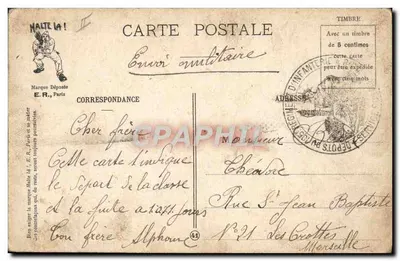 HALTE LÀ !
II
CARTE POSTALE
TIMBRE
Envoi militaire
Avec un timbre
de 5 centimes
cette carte
peut être expédiée
Marque Déposée
E. R., Paris
CORRESPONDANCE
ADRESSE
D'INFANTERIE
Cher frère
Cette carte t'indique
le départ de la classe
et la fuite a 1021 jours
Ton frère Alphonse
Monsieur
Théodore
Rue St Jean Baptiste
N° 21 Les Crottes
Marseille
44
CPAPHIL
Bien exiger la marque Halte là ! E. R., Paris